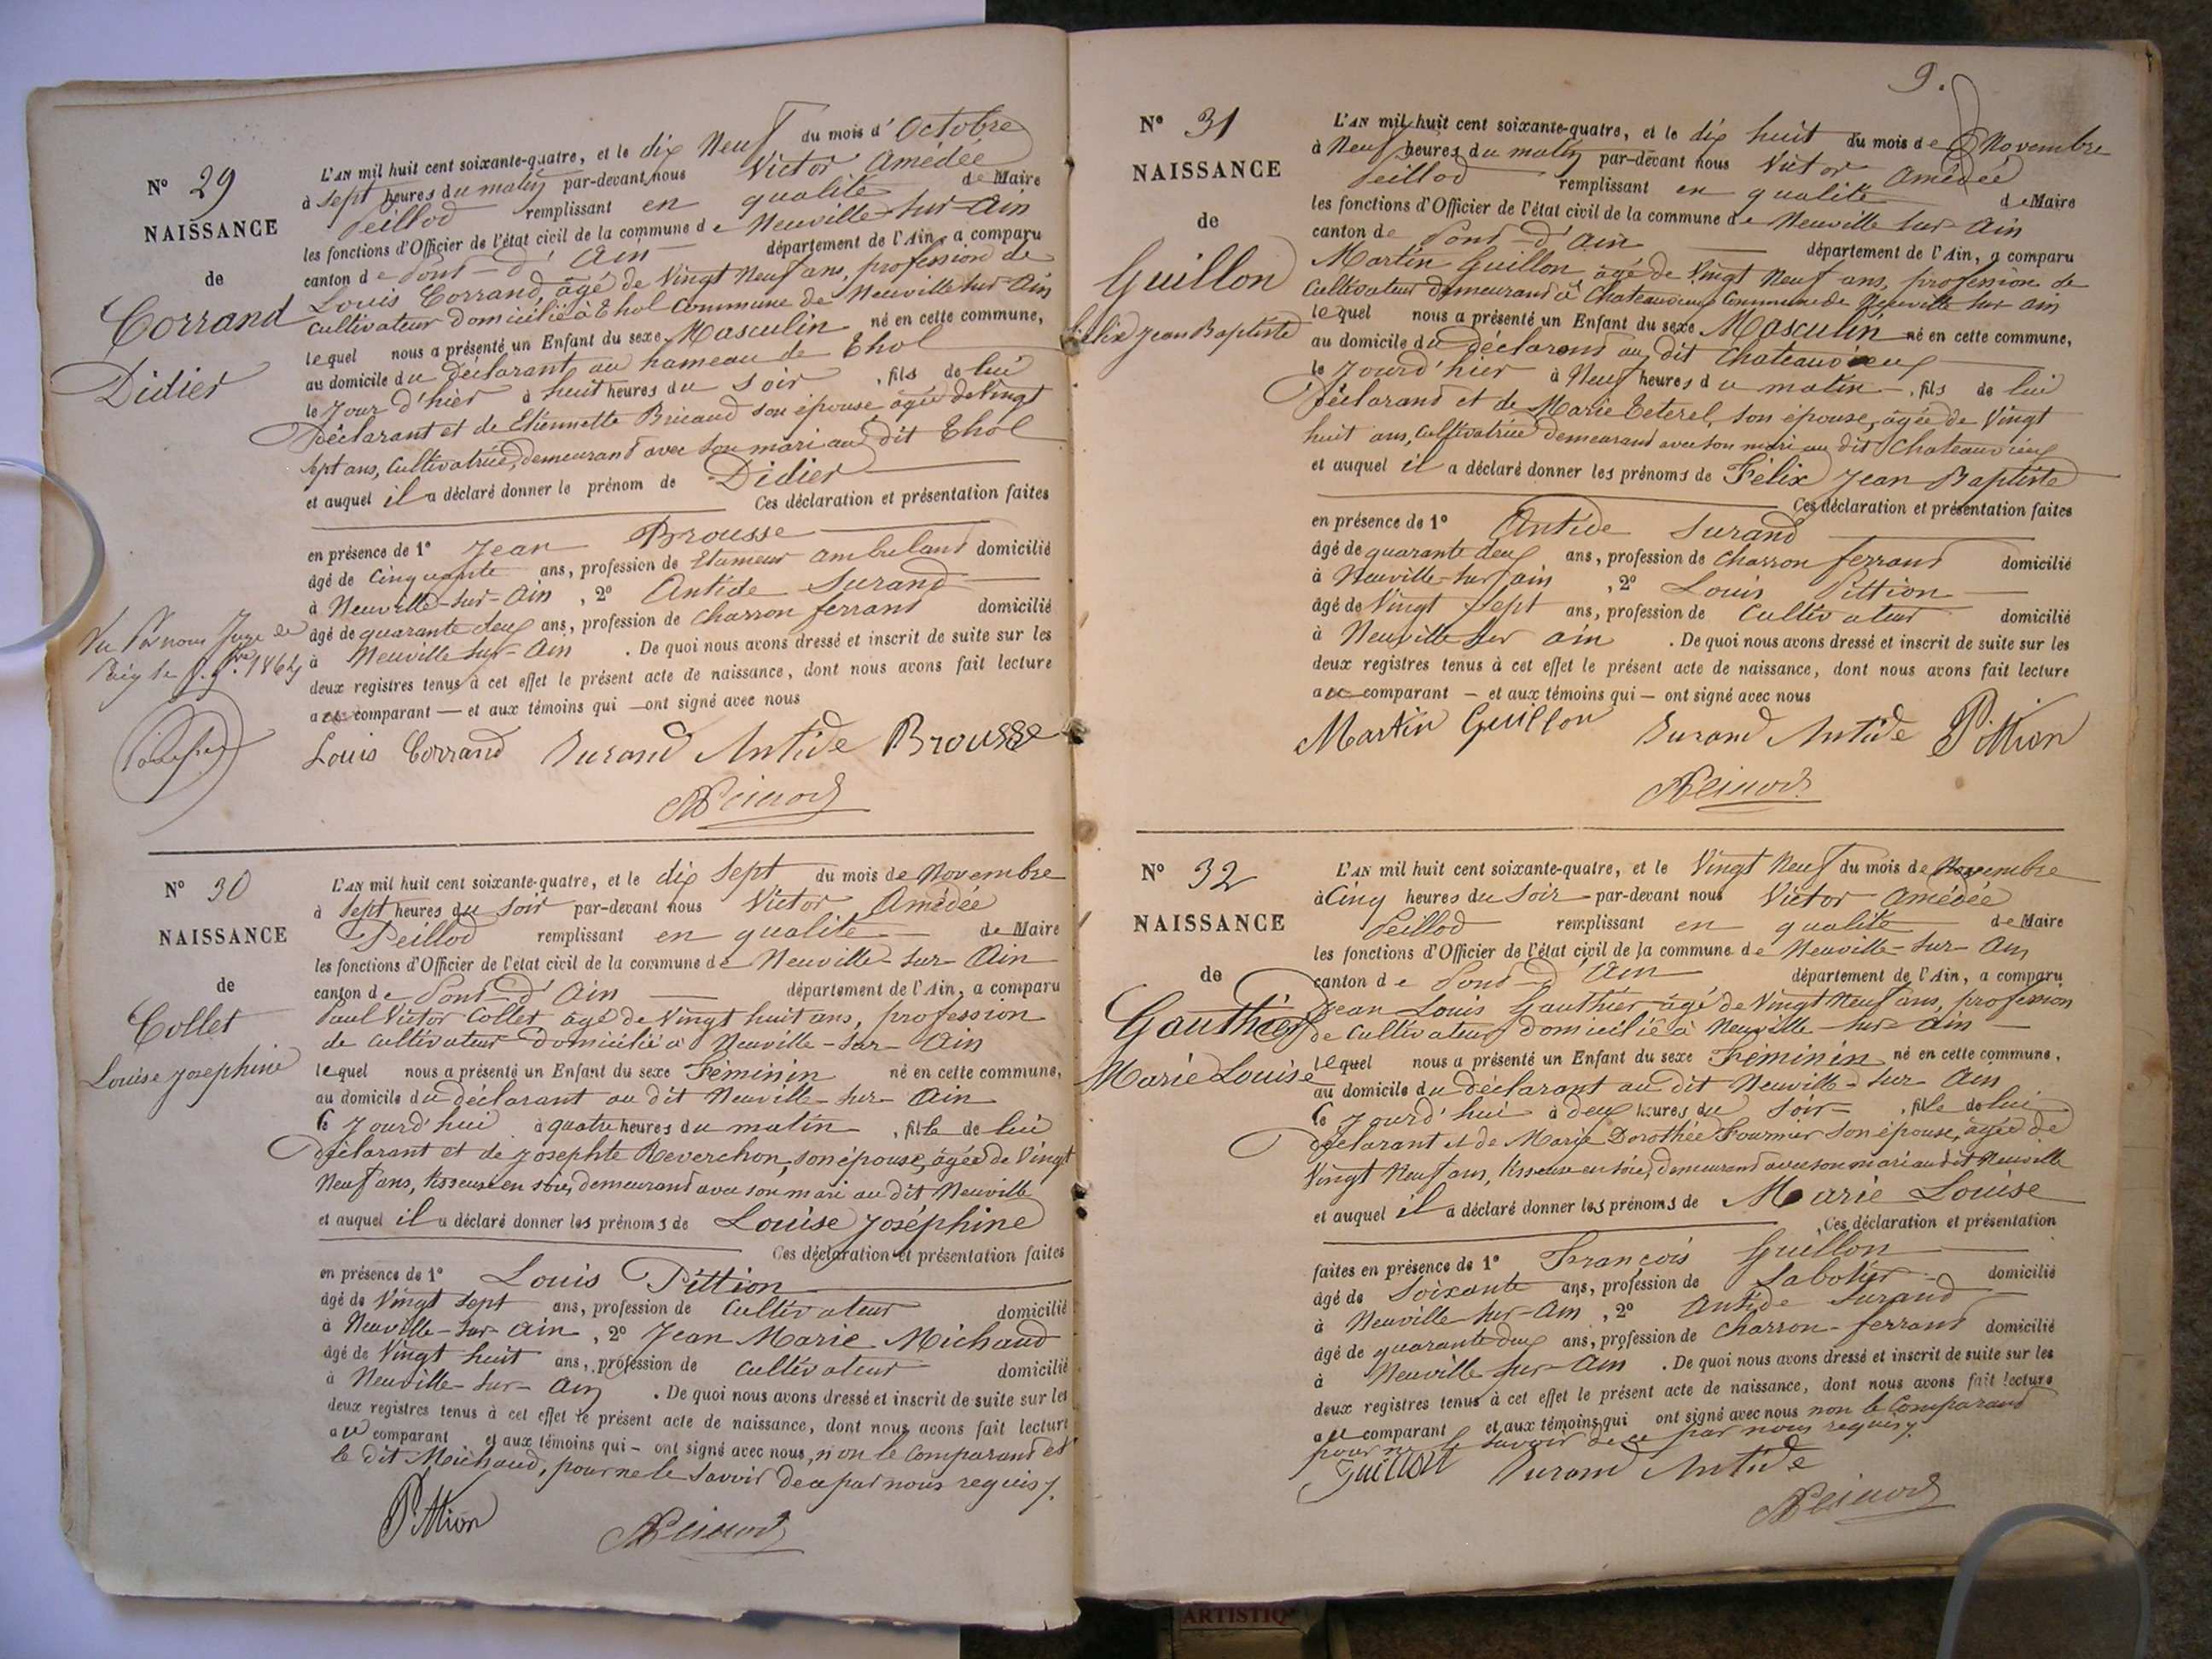 N° 29
NAISSANCE
de
Corrand
Didier
L'AN mil huit cent soixante-quatre, et le dix Neuf du mois d'Octobre
à Sept heures du matin par-devant nous Victor Amédée
Peillod remplissant en qualité de Maire
les fonctions d'Officier de l'état civil de la commune de Neuville-sur-Ain
canton de Pont-d'Ain département de l'Ain, a comparu
Louis Corrand, âgé de Vingt Neuf ans, profession de
Cultivateur domicilié à Thol Commune de Neuville sur Ain
lequel nous a présenté un Enfant du sexe Masculin né en cette commune,
au domicile du déclarant au hameau de Thol
le jour d'hier à huit heures du soir, fils de lui
Déclarant et de Etiennette Bricaud son épouse âgée de Vingt
sept ans, Cultivatrice, demeurant avec son mari au dit Thol
et auquel il a déclaré donner le prénom de Didier
Ces déclaration et présentation faites
en présence de 1° Jean Brousse
âgé de Cinquante ans, profession de Etameur ambulant domicilié
à Neuville-sur-Ain, 2° Antide Durand
âgé de quarante deux ans, profession de Charron ferrant domicilié
à Neuville sur-Ain. De quoi nous avons dressé et inscrit de suite sur les
deux registres tenus à cet effet le présent acte de naissance, dont nous avons fait lecture
au comparant — et aux témoins qui — ont signé avec nous
Vu Par nous Juge de
1864
Louis Corrand Durand Antide Brousse
N° 30
NAISSANCE
de
Collet
Louise Josephine
L'AN mil huit cent soixante-quatre, et le dix Sept du mois de Novembre
à Sept heures du soir par-devant nous Victor Amédée
Peillod remplissant en qualité de Maire
les fonctions d'Officier de l'état civil de la commune de Neuville-sur-Ain
canton de Pont-d'Ain département de l'Ain, a comparu
Paul Victor Collet âgé de Vingt huit ans, profession
de cultivateur domicilié à Neuville-sur-Ain
lequel nous a présenté un Enfant du sexe Féminin né en cette commune,
au domicile du déclarant au dit Neuville-sur-Ain
le jourd'hui à quatre heures du matin, fille de lui
Déclarant et de Josephte Reverchon, son épouse, âgée de Vingt
Neuf ans, tisseuse en soie, demeurant avec son mari au dit Neuville
et auquel il a déclaré donner les prénoms de Louise Joséphine
Ces déclaration et présentation faites
en présence de 1° Louis Pittion
âgé de Vingt Sept ans, profession de Cultivateur domicilié
à Neuville-sur-Ain, 2° Jean Marie Michaud
âgé de Vingt huit ans, profession de cultivateur domicilié
à Neuville-sur-Ain. De quoi nous avons dressé et inscrit de suite sur les
deux registres tenus à cet effet le présent acte de naissance, dont nous avons fait lecture
au comparant et aux témoins qui — ont signé avec nous, non le Comparant et
le dit Michaud, pour ne le savoir de ce par nous requis.
Pittion
9.
N° 31
NAISSANCE
de
Guillon
Félix Jean Baptiste
L'AN mil huit cent soixante-quatre, et le dix huit du mois de Novembre
à Neuf heures du matin par-devant nous Victor Amédée
Peillod remplissant en qualité de Maire
les fonctions d'Officier de l'état civil de la commune de Neuville sur Ain
canton de Pont-d'Ain département de l'Ain, a comparu
Martin Guillon âgé de Vingt Neuf ans, profession de
Cultivateur demeurant à Chateauvieux Commune de Neuville sur Ain
lequel nous a présenté un Enfant du sexe Masculin né en cette commune,
au domicile du déclarant au dit Chateauvieux
le jourd'hier à Neuf heures du matin, fils de lui
Déclarant et de Marie Teterel, son épouse, âgée de Vingt
huit ans, Cultivatrice demeurant avec son mari au dit Chateauvieux
et auquel il a déclaré donner les prénoms de Félix Jean Baptiste
Ces déclaration et présentation faites
en présence de 1° Antide Durand
âgé de quarante deux ans, profession de Charron ferrant domicilié
à Neuville-sur Ain, 2° Louis Pittion
âgé de Vingt Sept ans, profession de Cultivateur domicilié
à Neuville sur Ain. De quoi nous avons dressé et inscrit de suite sur les
deux registres tenus à cet effet le présent acte de naissance, dont nous avons fait lecture
au comparant — et aux témoins qui — ont signé avec nous
Martin Guillon Durand Antide Pittion
N° 32
NAISSANCE
de
Gauthier
Marie Louise
L'AN mil huit cent soixante-quatre, et le Vingt Neuf du mois de Novembre
à Cinq heures du Soir par-devant nous Victor Amédée
Peillod remplissant en qualité de Maire
les fonctions d'Officier de l'état civil de la commune de Neuville-sur-Ain
canton de Pont-d'Ain département de l'Ain, a comparu
Jean Louis Gauthier âgé de Vingt Neuf ans, profession
de Cultivateur domicilié à Neuville-sur-Ain
lequel nous a présenté un Enfant du sexe Féminin né en cette commune,
au domicile du déclarant au dit Neuville-sur Ain
le jourd'hui à deux heures du soir, fille de lui
déclarant et de Marie Dorothée Fournier son épouse, âgée de
Vingt Neuf ans, tisseuse en soie, demeurant avec son mari au dit Neuville
et auquel il a déclaré donner les prénoms de Marie Louise
Ces déclaration et présentation
faites en présence de 1° François Guillon
âgé de Soixante ans, profession de Sabotier domicilié
à Neuville-sur-Ain, 2° Antide Durand
âgé de quarante deux ans, profession de Charron-ferrant domicilié
à Neuville sur-Ain. De quoi nous avons dressé et inscrit de suite sur les
deux registres tenus à cet effet le présent acte de naissance, dont nous avons fait lecture
au comparant et aux témoins qui ont signé avec nous non le Comparant
pour ne le savoir de ce par nous requis.
Guillon Durand Antide
ARTISTIQ